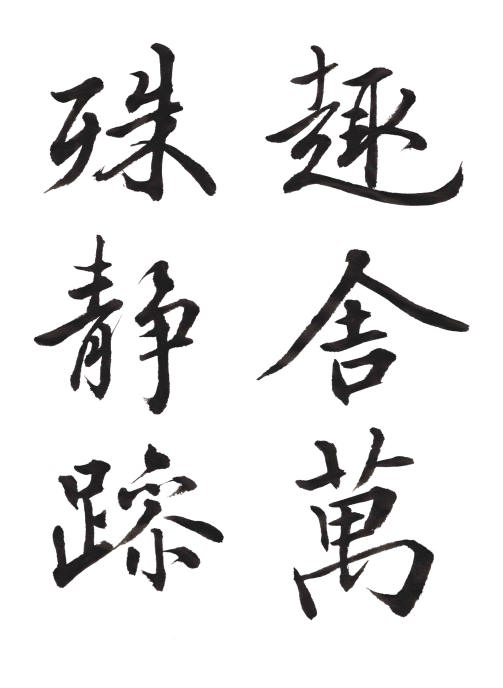 趣舍萬
殊靜躁